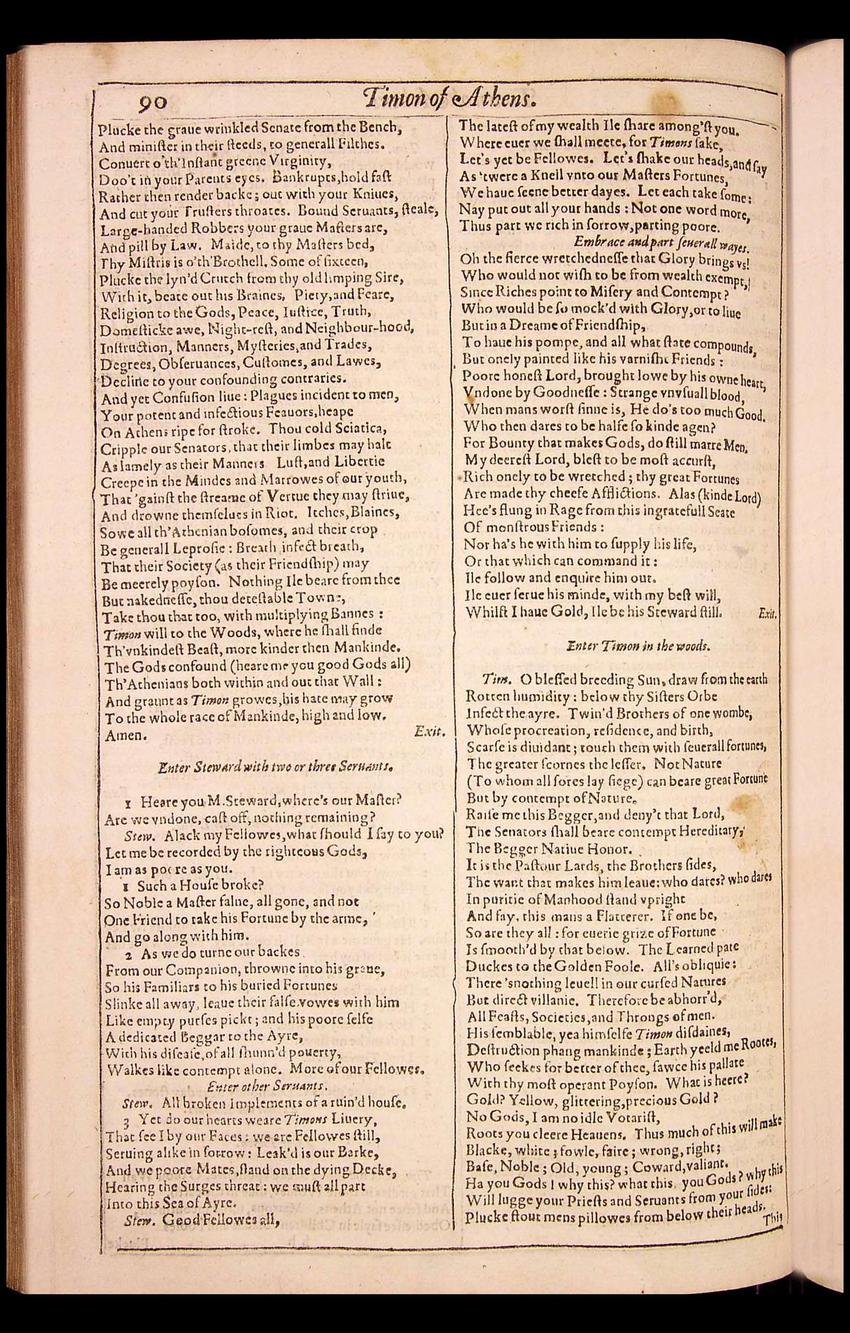 90
Timon of Athens.
Plucke the graue wrinkled Senate from the Bench,
And minister in their steeds, to generall Filthes.
Conuert o'th'Instant greene Virginity,
Doo't in your Parents eyes. Bankrupts, hold fast
Rather then render backe; out with your Kniues,
And cut your Trusters throates. Bound Seruants, steale,
Large-handed Robbers your graue Masters are,
And pill by Law. Maide, to thy Masters bed,
Thy Mistris is o'th'Brothell. Some of sixteen,
Plucke the lyn'd Crutch from thy old limping Sire,
With it, beate out his Braines, Piety, and Feare,
Religion to the Gods, Peace, Iustice, Truth,
Domesticke awe, Night-rest, and Neighbour-hood,
Instruction, Manners, Mysteries, and Trades,
Degrees, Obseruances, Customes, and Lawes,
Decline to your confounding contraries.
And yet Confusion liue: Plagues incident to men,
Your potent and infectious Feauors, heape
On Athens ripe for stroke. Thou cold Sciatica,
Cripple our Senators, that their limbes may halt
As lamely as their Manners Lust, and Libertie
Creepe in the Mindes and Marrowes of our youth,
That 'gainst the streame of Vertue they may striue,
And drowne themselues in Riot. Itches, Blaines,
Sowe all th'Athenian bosomes, and their crop
Be generall Leprosie: Breath infect breath,
That their Society (as their Friendship) may
Be meerely poyson. Nothing Ile beare from thee
But nakednesse, thou detestable Towne,
Take thou that too, with multiplying Bannes:
Timon will to the Woods, where he shall finde
Th'vnkindest Beast, more kinder then Mankinde.
The Gods confound (heare me you good Gods all)
Th'Athenians both within and out that Wall:
And graunt as Timon growes, his hate may grow
To the whole race of Mankinde, high and low.
Amen. Exit.
Enter Steward with two or three Seruants.
1 Heare you M. Steward, where's our Master?
Are we vndone, cast off, nothing remaining?
Stew. Alack my Fellowes, what should I say to you?
Let me be recorded by the righteous Gods,
I am as poore as you.
1 Such a House broke?
So Noble a Master falne, all gone, and not
One Friend to take his Fortune by the arme,
And go along with him.
2 As we do turne our backes
From our Companion, throwne into his graue,
So his Familiars to his buried Fortunes
Slinke all away, leaue their false vowes with him
Like empty purses pickt; and his poore selfe
A dedicated Beggar to the Ayre,
With his disease, of all shunn'd pouerty,
Walkes like contempt alone. More of our Fellowes.
Enter other Seruants.
Stew. All broken Implements of a ruin'd house.
3 Yet do our hearts weare Timons Liuery,
That see I by our Faces: we are Fellowes still,
Seruing alike in sorrow: Leak'd is our Barke,
And we poore Mates, stand on the dying Decke,
Hearing the Surges threat: we must all part
Into this Sea of Ayre.
Stew. Good Fellowes all,
The latest of my wealth Ile share among'st you.
Where euer we shall meete, for Timons sake,
Let's yet be Fellowes. Let's shake our heads, and say
As 'twere a Knell vnto our Masters Fortunes,
We haue seene better dayes. Let each take some:
Nay put out all your hands: Not one word more,
Thus part we rich in sorrow, parting poore.
Embrace and part seuerall wayes.
Oh the fierce wretchednesse that Glory brings vs!
Who would not wish to be from wealth exempt,
Since Riches point to Misery and Contempt?
Who would be so mock'd with Glory, or to liue
But in a Dreame of Friendship,
To haue his pompe, and all what state compounds,
But onely painted like his varnisht Friends:
Poore honest Lord, brought lowe by his owne heart,
Vndone by Goodnesse: Strange vnvsuall blood,
When mans worst sinne is, He do's too much Good.
Who then dares to be halfe so kinde agen?
For Bounty that makes Gods, do still marre Men.
My deerest Lord, blest to be most accurst,
Rich onely to be wretched; thy great Fortunes
Are made thy cheefe Afflictions. Alas (kinde Lord)
Hee's flung in Rage from this ingratefull Seate
Of monstrous Friends:
Nor ha's he with him to supply his life,
Or that which can command it:
Ile follow and enquire him out.
Ile euer serue his minde, with my best will,
Whilst I haue Gold, Ile be his Steward still. Exit.
Enter Timon in the woods.
Tim. O blessed breeding Sun, draw from the earth
Rotten humidity: below thy Sisters Orbe
Infect the ayre. Twin'd Brothers of one wombe,
Whose procreation, residence, and birth,
Scarse is diuidant; touch them with seuerall fortunes,
The greater scornes the lesser. Not Nature
(To whom all sores lay siege) can beare great Fortune
But by contempt of Nature.
Raise me this Begger, and deny't that Lord,
The Senators shall beare contempt Hereditary,
The Begger Natiue Honor.
It is the Pastour Lards, the Brothers sides,
The want that makes him leaue: who dares? who dares
In puritie of Manhood stand vpright
And say, this mans a Flatterer. If one be,
So are they all: for euerie grize of Fortune
Is smooth'd by that below. The Learned pate
Duckes to the Golden Foole. All's obliquie:
There 'snothing leuell in our cursed Natures
But direct villanie. Therefore be abhorr'd,
All Feasts, Societies, and Throngs of men.
His semblable, yea himselfe Timon disdaines,
Destruction phang mankinde; Earth yeeld me Rootes,
Who seekes for better of thee, sawce his pallate
With thy most operant Poyson. What is heere?
Gold? Yellow, glittering, precious Gold?
No Gods, I am no idle Votarist,
Roots you cleere Heauens. Thus much of this will make
Blacke, white; fowle, faire; wrong, right;
Base, Noble; Old, young; Coward, valiant.
Ha you Gods! why this? what this, you Gods? why this
Will lugge your Priests and Seruants from your sides:
Plucke stout mens pillowes from below their heads.
This